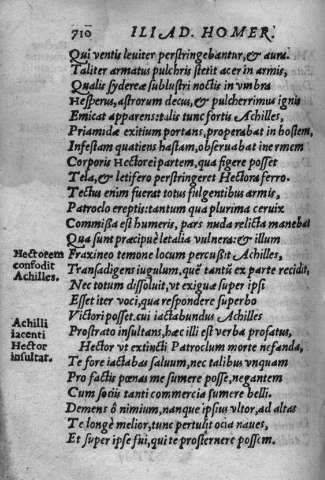 710 ILIAD. HOMER.
Qui ventis leuiter perstringebantur, & aura.
Taliter armatus pulchris stetit acer in armis,
Qualis sydereæ sublustri noctis in vmbra
Hesperus, astrorum decus, & pulcherrimus ignis
Emicat apparens: talis tunc fortis Achilles,
Priamidæ exitium portans, properabat in hostem,
Infestam quatiens hastam, obseruabat inermem
Corporis Hectorei partem, qua figere posset
Tela, & letifero perstringeret Hectora ferro.
Tectus enim fuerat totus fulgentibus armis,
Patroclo ereptis: tantum qua plurima ceruix
Commissa est humeris, pars nuda relicta manebat
Qua sunt præcipuè letalia vulnera: & illum
Hectorem confodit Achilles.
Fraxineo temone locum percussit Achilles,
Transadigens iugulum, quē tantū ex parte recidit,
Nec totum dissoluit, vt exigua super ipsi
Esset iter voci, qua respondere superbo
Victori posset. cui iactabundus Achilles
Achilli iacenti Hector insultat.
Prostrato insultans, hæc illi est verba profatus,
Hector vt extincti Patroclum morte nefanda,
Te fore iactabas saluum, nec talibus vnquam
Pro factis pœnas me sumere posse, negantem
Cum sociis tanti commercia sumere belli.
Demens ô nimium, nanque ipsius vltor, ad altas
Te longè melior, tunc pertulit ocia naues,
Et super ipse fui, qui te prosternere possem.